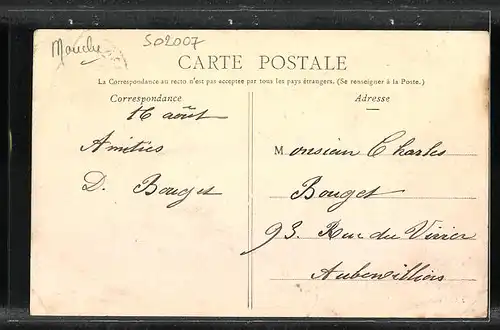 Manche
502007
CARTE POSTALE
La Correspondance au recto n'est pas acceptée par tous les pays étrangers. (Se renseigner à la Poste.)
Correspondance
Adresse
16 août
Amitiés
D. Bouget
Monsieur Charles
Bouget
93. Rue du Vivier
Aubervilliers